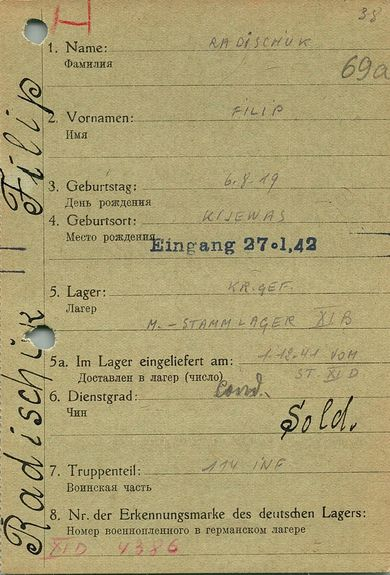 38
1. Name: RADISCHUK
Фамилия
69a
2. Vornamen: FILIP
Имя
3. Geburtstag: 6.8.19
День рождения
4. Geburtsort: KIJEWAS
Место рождения
Eingang 27.1.42
5. Lager: KR.GEF.
Лагерь
M.-STAMMLAGER XI B
5a. Im Lager eingeliefert am: 1.12.41 VOM
Доставлен в лагерь (число) ST. XI D
6. Dienstgrad:
Чин
Sold.
7. Truppenteil: 114 INF
Воинская часть
8. Nr. der Erkennungsmarke des deutschen Lagers:
Номер военнопленного в германском лагере
XI D 4386
Radischuk Filip